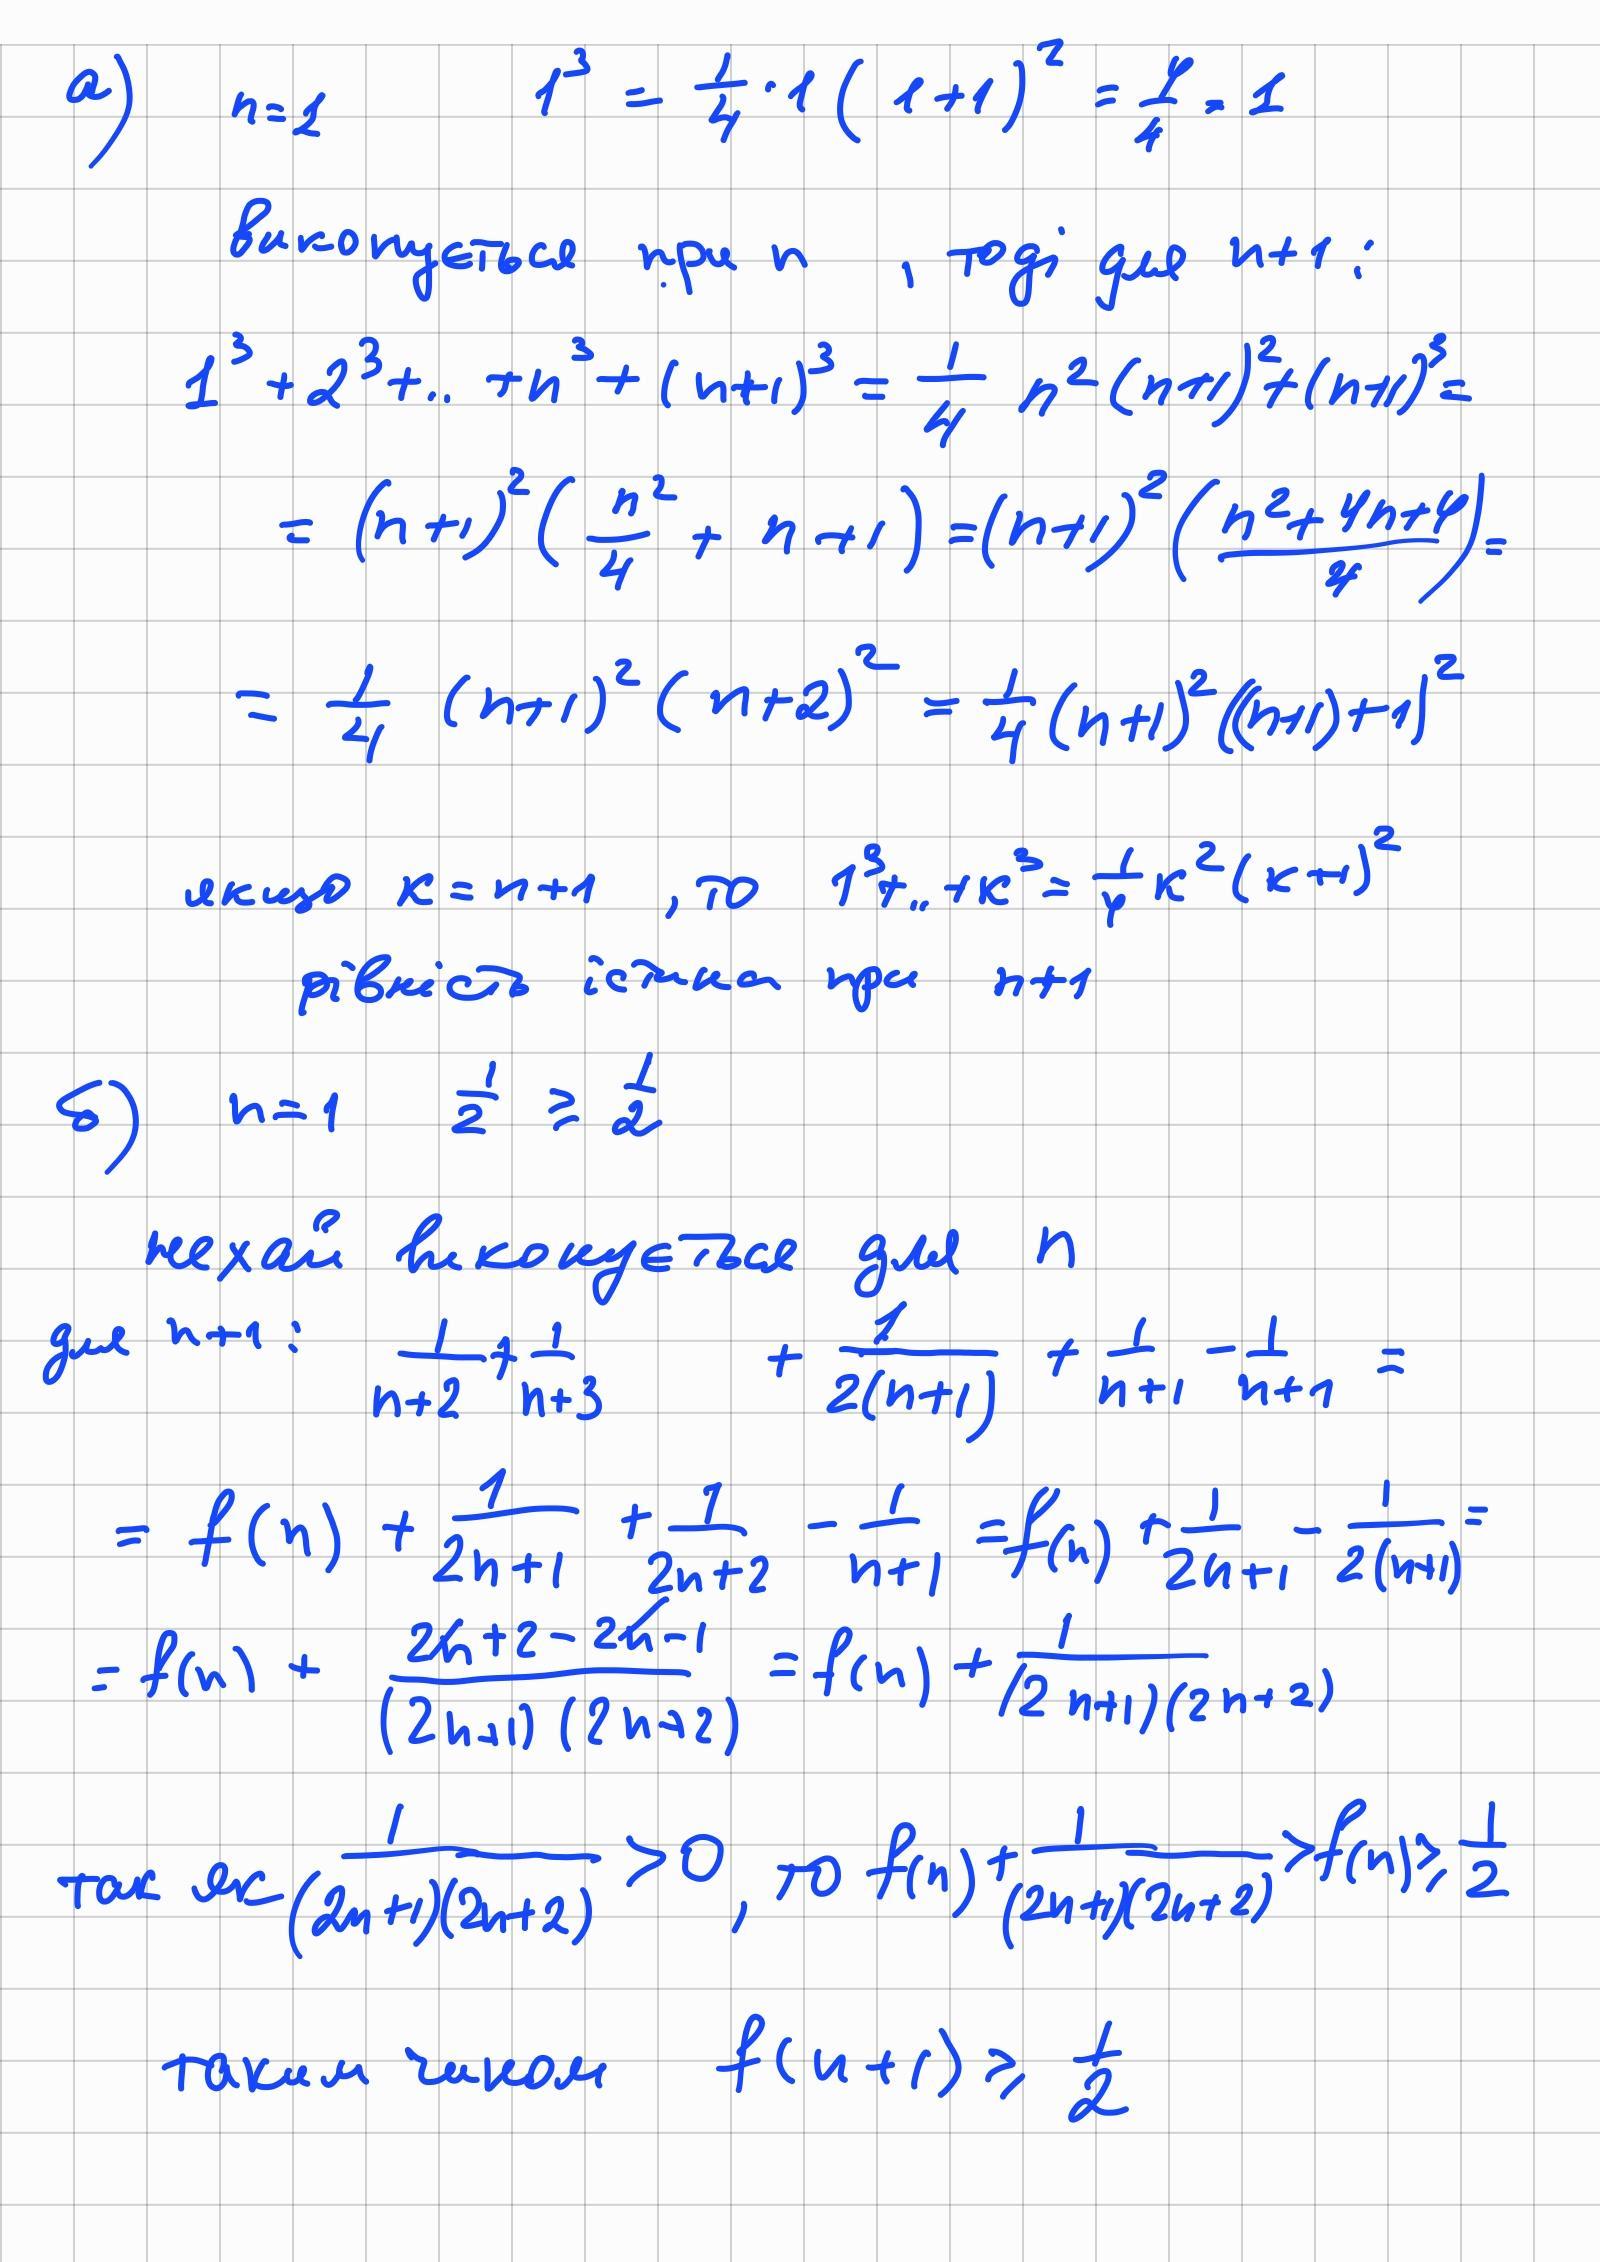 а) n=1 1³ = 1/4 · 1 (1+1)² = 4/4 = 1
виконується при n , тоді для n+1 :
1³ + 2³ + .. + n³ + (n+1)³ = 1/4 n² (n+1)² + (n+1)³ =
= (n+1)² (n²/4 + n + 1) = (n+1)² ((n² + 4n + 4)/4) =
= 1/4 (n+1)² (n+2)² = 1/4 (n+1)² ((n+1)+1)²
якщо k = n+1 , то 1³ + .. + k³ = 1/4 k² (k+1)²
рівність істина при n+1
б) n=1 1/2 ≥ 1/2
нехай виконується для n
для n+1 : 1/(n+2) + 1/(n+3) + 1/(2(n+1)) + 1/(n+1) − 1/(n+1) =
= f(n) + 1/(2n+1) + 1/(2n+2) − 1/(n+1) = f(n) + 1/(2n+1) − 1/(2(n+1)) =
= f(n) + (2n+2−2n−1)/((2n+1)(2n+2)) = f(n) + 1/((2n+1)(2n+2))
так як 1/((2n+1)(2n+2)) > 0 , то f(n) + 1/((2n+1)(2n+2)) > f(n) ≥ 1/2
таким чином f(n+1) ≥ 1/2